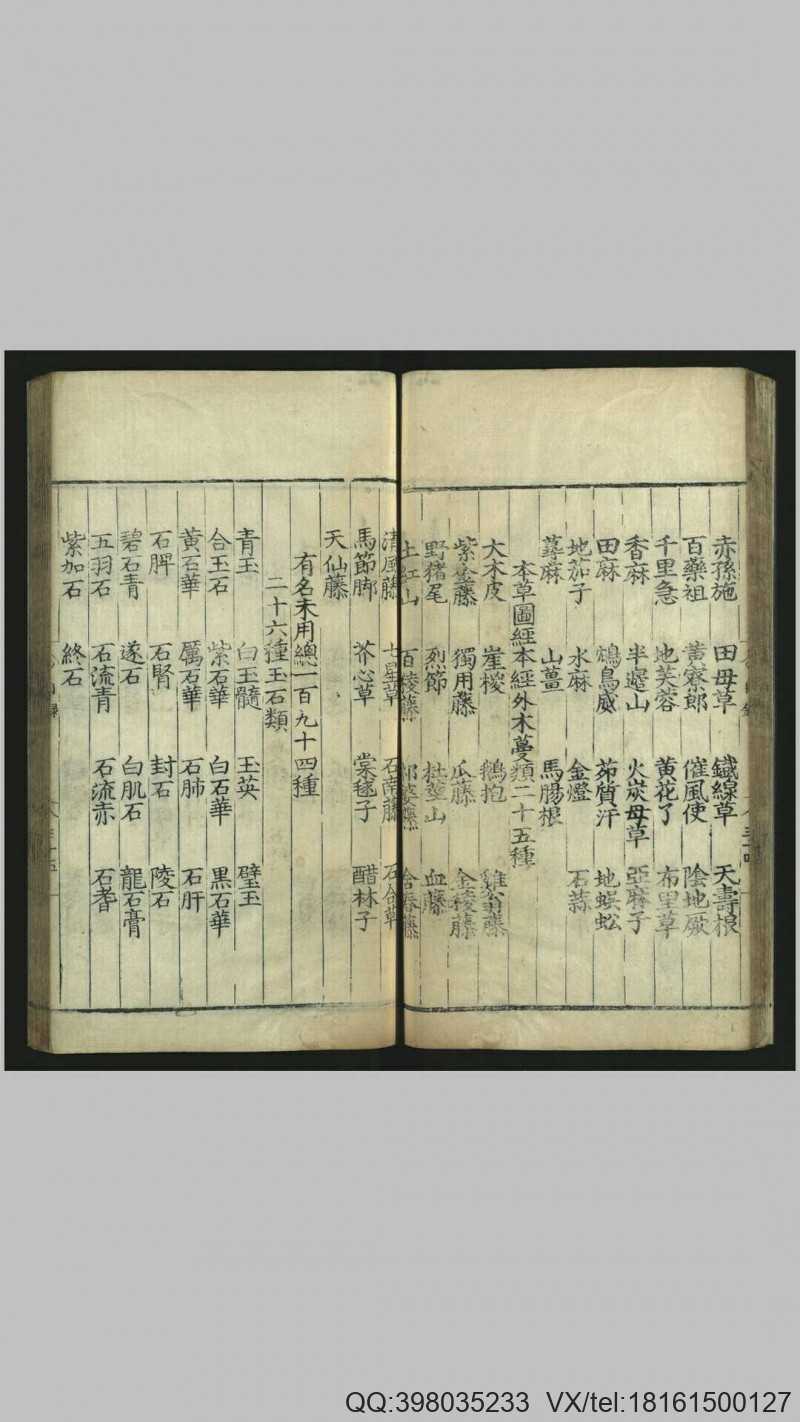 赤孫施 田母草 鐵線草 天壽根
百藥祖 黃寮郎 催風使 陰地厥
千里急 地芙蓉 黃花了 布里草
香麻 半邊山 火炭母草 亞麻子
田麻 鴆鳥威 茆質汗 地蜈蚣
地茄子 水麻 金燈 石蒜
蕁麻 山薑 馬腸根
本草圖經本經外木蔓類二十五種
大木皮 崖椶 鵝抱 雞翁藤
紫金藤 獨用藤 瓜藤 金稜藤
野豬尾 烈節 杜莖山 血藤
土紅山 百稜藤 祁婆藤 含春藤
清風藤 七星草 石南藤 石合草
馬節脚 芥心草 棠毬子 醋林子
天仙藤
有名未用總一百九十四種
二十六種玉石類
青玉 白玉髓 玉英 璧玉
合玉石 紫石華 白石華 黑石華
黃石華 厲石華 石肺 石肝
石脾 石腎 封石 陵石
碧石青 遂石 白肌石 龍石膏
五羽石 石流青 石流赤 石耆
紫加石 終石
QQ:398035233 VX/tel:18161500127